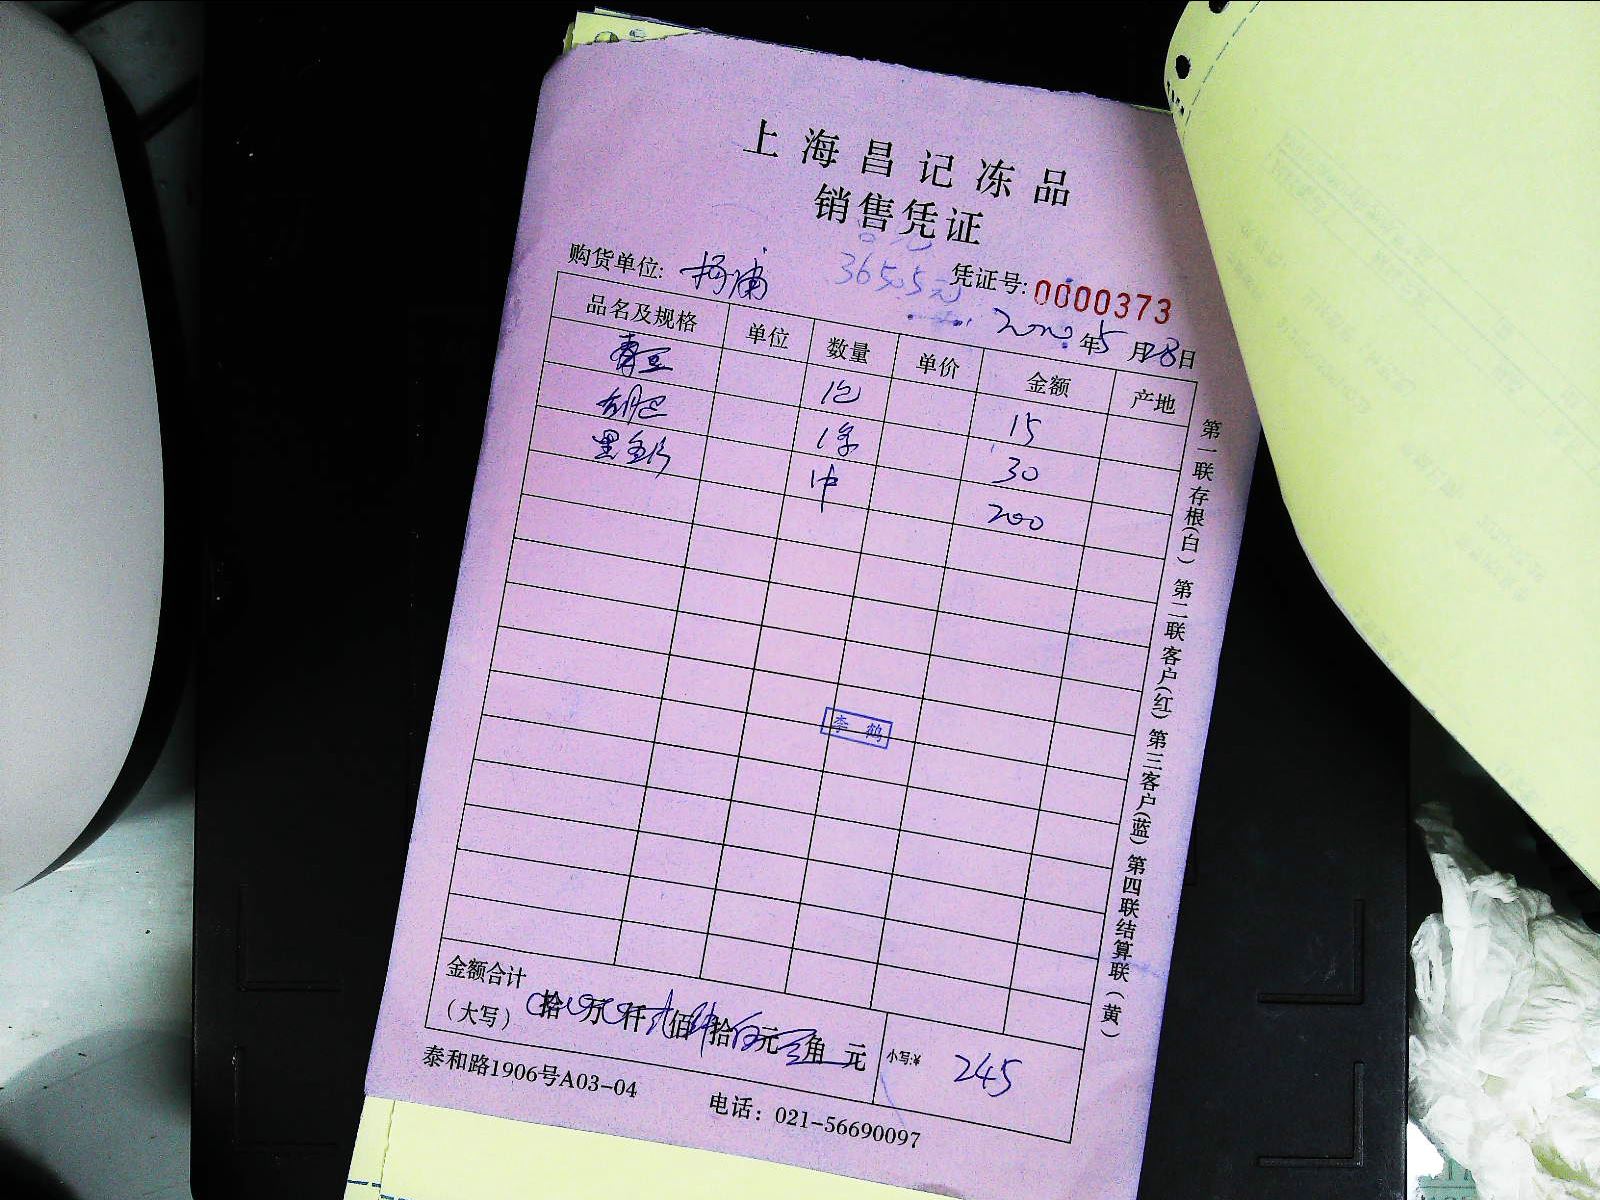 上海昌记冻品
销售凭证
购货单位: 杨浦 3650.5元 凭证号: 0000373
年5月28日
品名及规格 单位 数量 单价 金额 产地
青豆 1包 15
1条 30
1件 200
李鹤
金额合计
(大写) 拾 万 仟 贰佰肆拾伍元 角 元 小写:¥ 245
泰和路1906号A03-04 电话: 021-56690097
第一联存根(白) 第二联客户(红) 第三客户(蓝) 第四联结算联(黄)